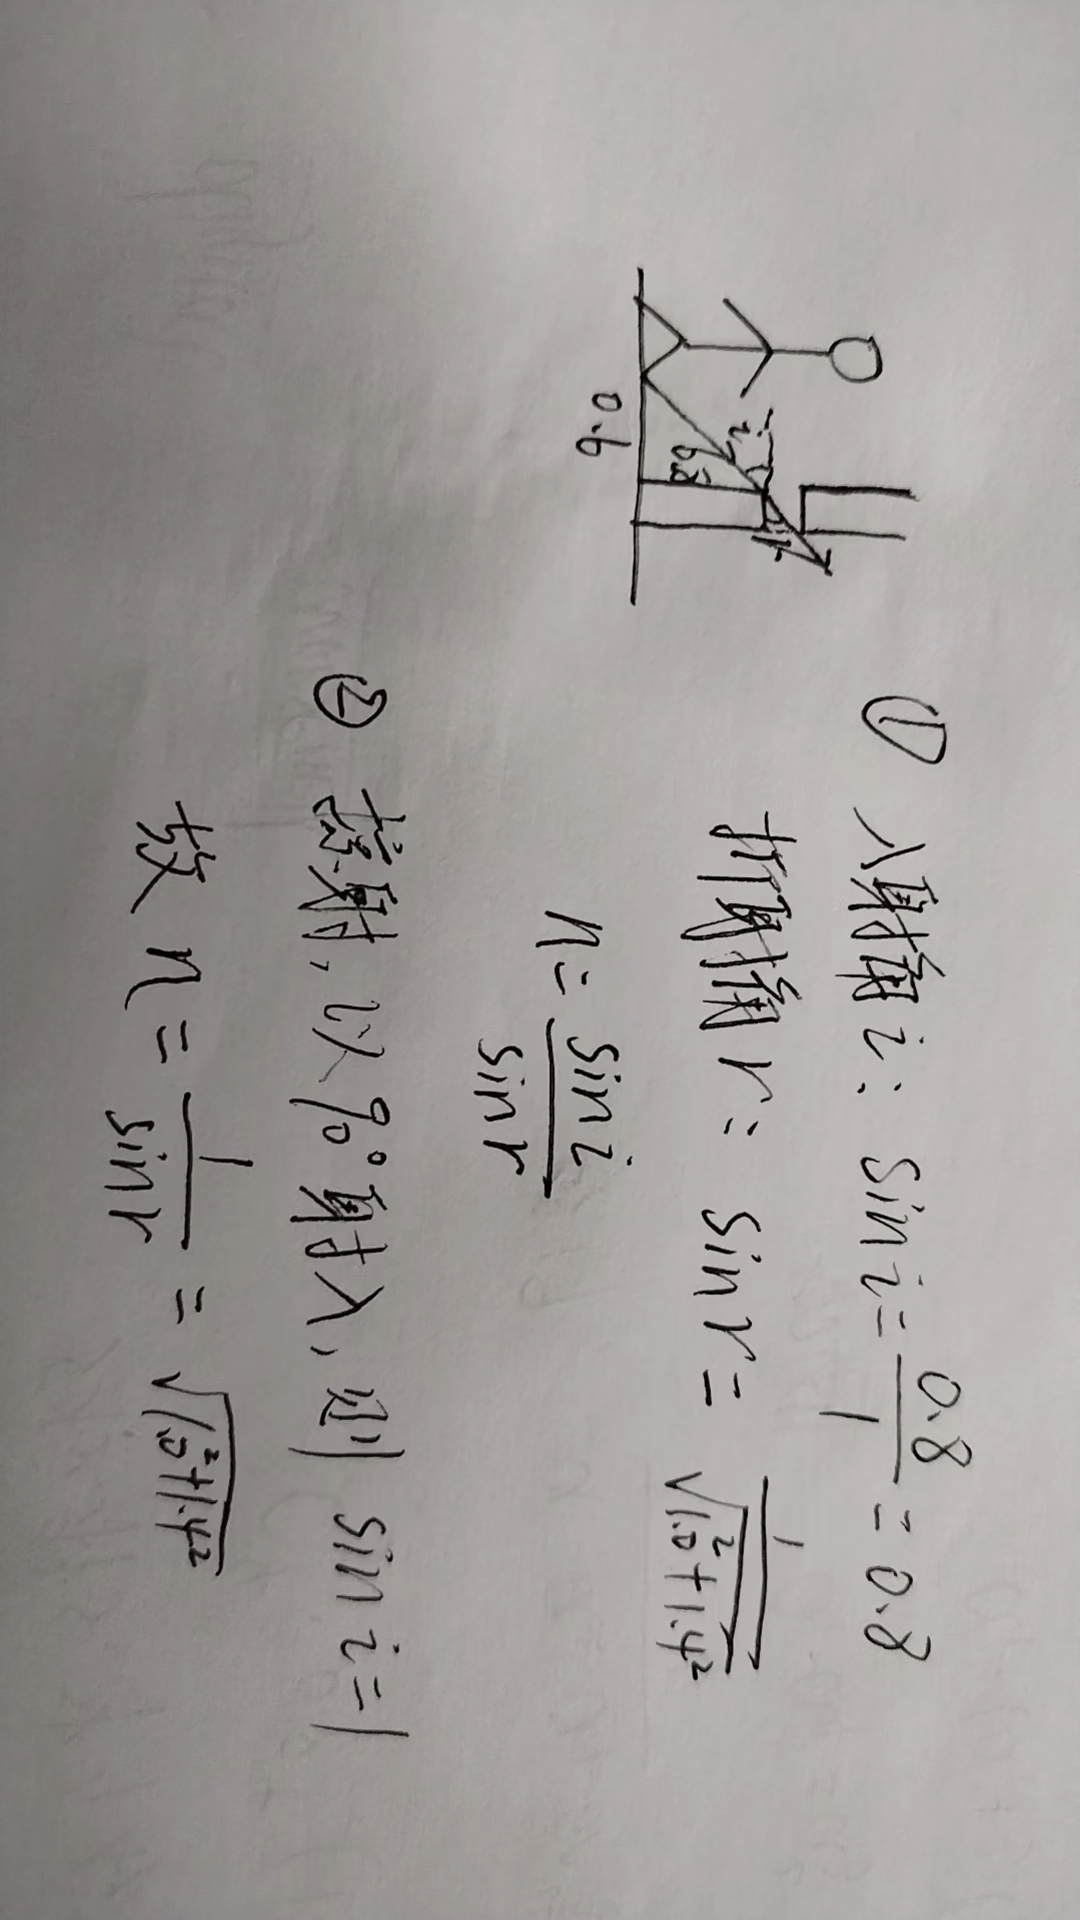 ① 入射角 i: sin i = 0.8/1 = 0.8
折射角 r: sin r = 1/√(1.0²+1.4²)
n = sin i / sin r
② 掠射, 以90°射入, 则 sin i = 1
故 n = 1/sin r = √(1.0²+1.4²)
i
r
0.6